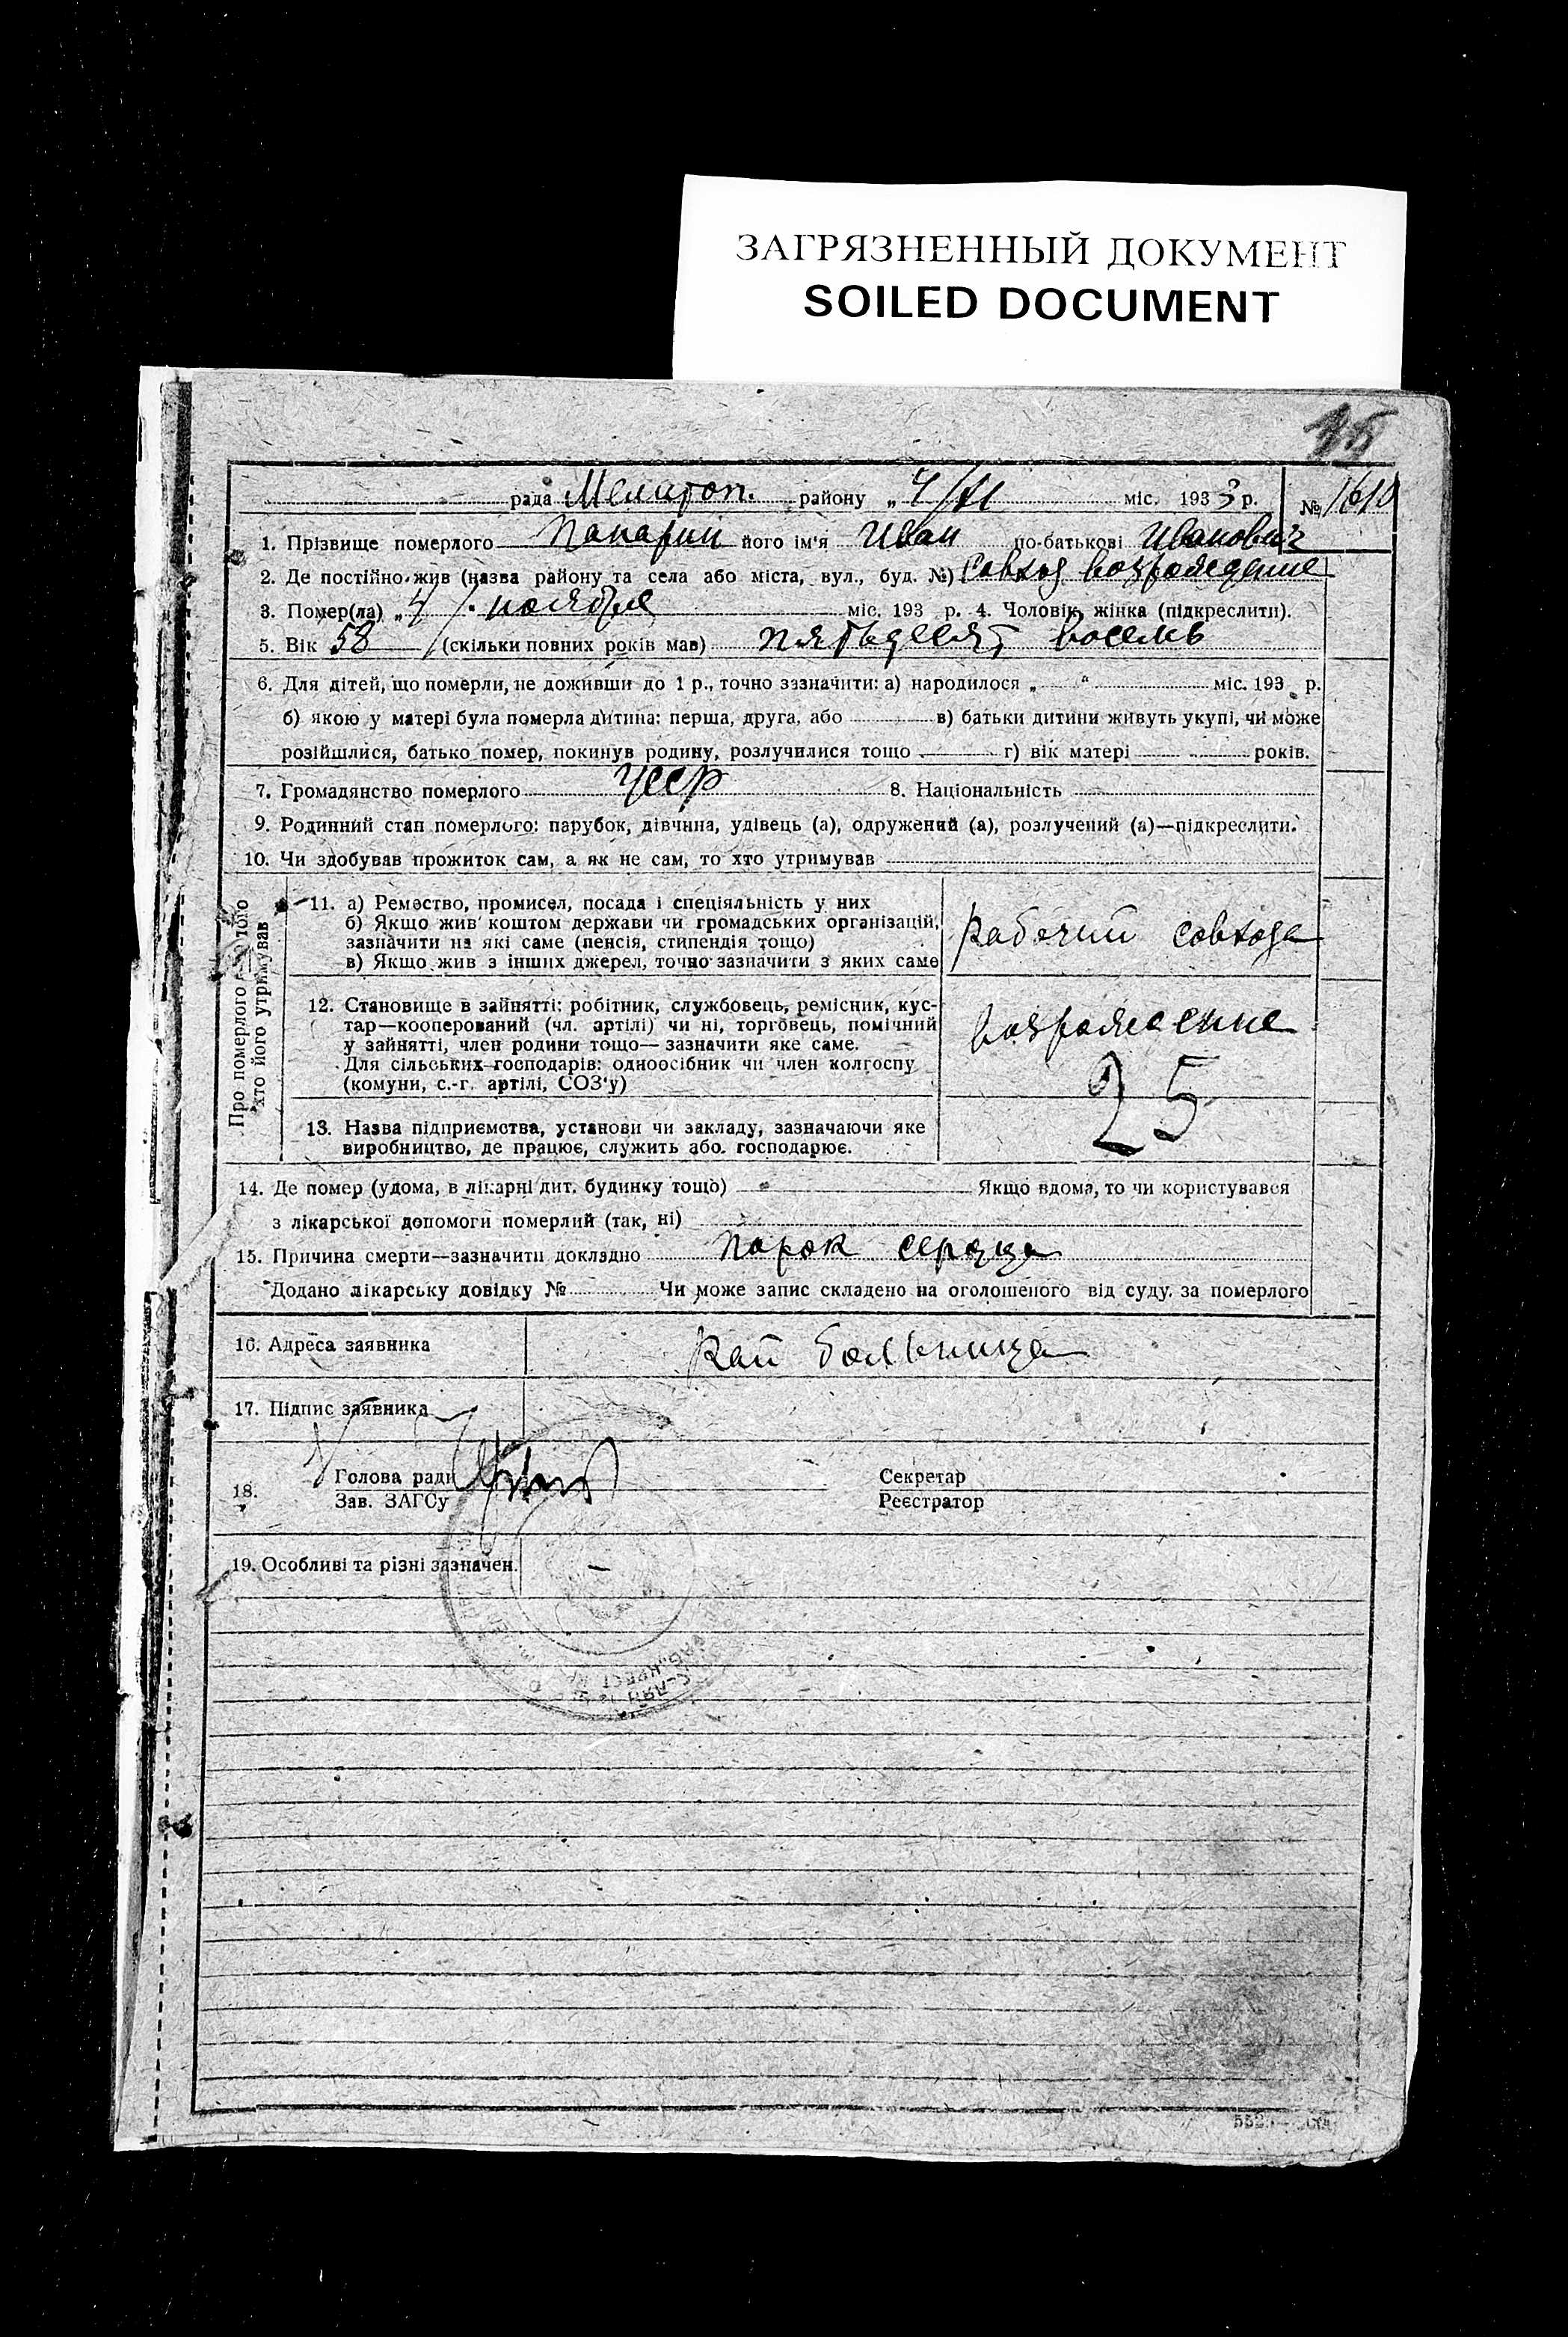 ЗАГРЯЗНЕННЫЙ ДОКУМЕНТ
SOILED DOCUMENT
рада Мелитоп. району „4/XI міс. 1933 р. № 1610
1. Прізвище померлого його ім'я Иван по-батькові Иванович
2. Де постійно жив (назва району та села або міста, вул., буд. №) Совхоз возрождение
3. Помер(ла) „4 ноября міс. 193 р. 4. Чоловік, жінка (підкреслити).
5. Вік 58 (скільки повних років мав) пятьдесят восемь
6. Для дітей, що померли, не доживши до 1 р., точно зазначити: а) народилося „ “ міс. 193 р.
б) якою у матері була померла дитина: перша, друга, або в) батьки дитини живуть укупі, чи може
розійшлися, батько помер, покинув родину, розлучилися тощо г) вік матері років.
7. Громадянство померлого УССР 8. Національність
9. Родинний стан померлого: парубок, дівчина, удівець (а), одружений (а), розлучений (а)—підкреслити.
10. Чи здобував прожиток сам, а як не сам, то хто утримував
Про померлого того
хто його утримував
11. а) Ремество, промисел, посада і спеціяльність у них
б) Якщо жив коштом держави чи громадських організацій,
зазначити на які саме (пенсія, стипендія тощо)
в) Якщо жив з інших джерел, точно зазначити з яких саме
рабочий совхоза
12. Становище в зайнятті: робітник, службовець, ремісник, кус-
тар—кооперований (чл. артілі) чи ні, торговець, помічний
у зайнятті, член родини тощо— зазначити яке саме.
Для сільських-господарів: одноосібник чи член колгоспу
(комуни, с.-г. артілі, СОЗ'у)
25
13. Назва підприємства, установи чи закладу, зазначаючи яке
виробництво, де працює, служить або господарює.
14. Де помер (удома, в лікарні дит. будинку тощо) Якщо вдома, то чи користувався
з лікарської допомоги померлий (так, ні)
15. Причина смерти—зазначити докладно порок сердца
Додано лікарську довідку № Чи може запис складено на оголошеного від суду за померлого
16. Адреса заявника Рай больница
17. Підпис заявника
18. Голова ради Секретар
Зав. ЗАГСу Реєстратор
19. Особливі та різні зазначен. —